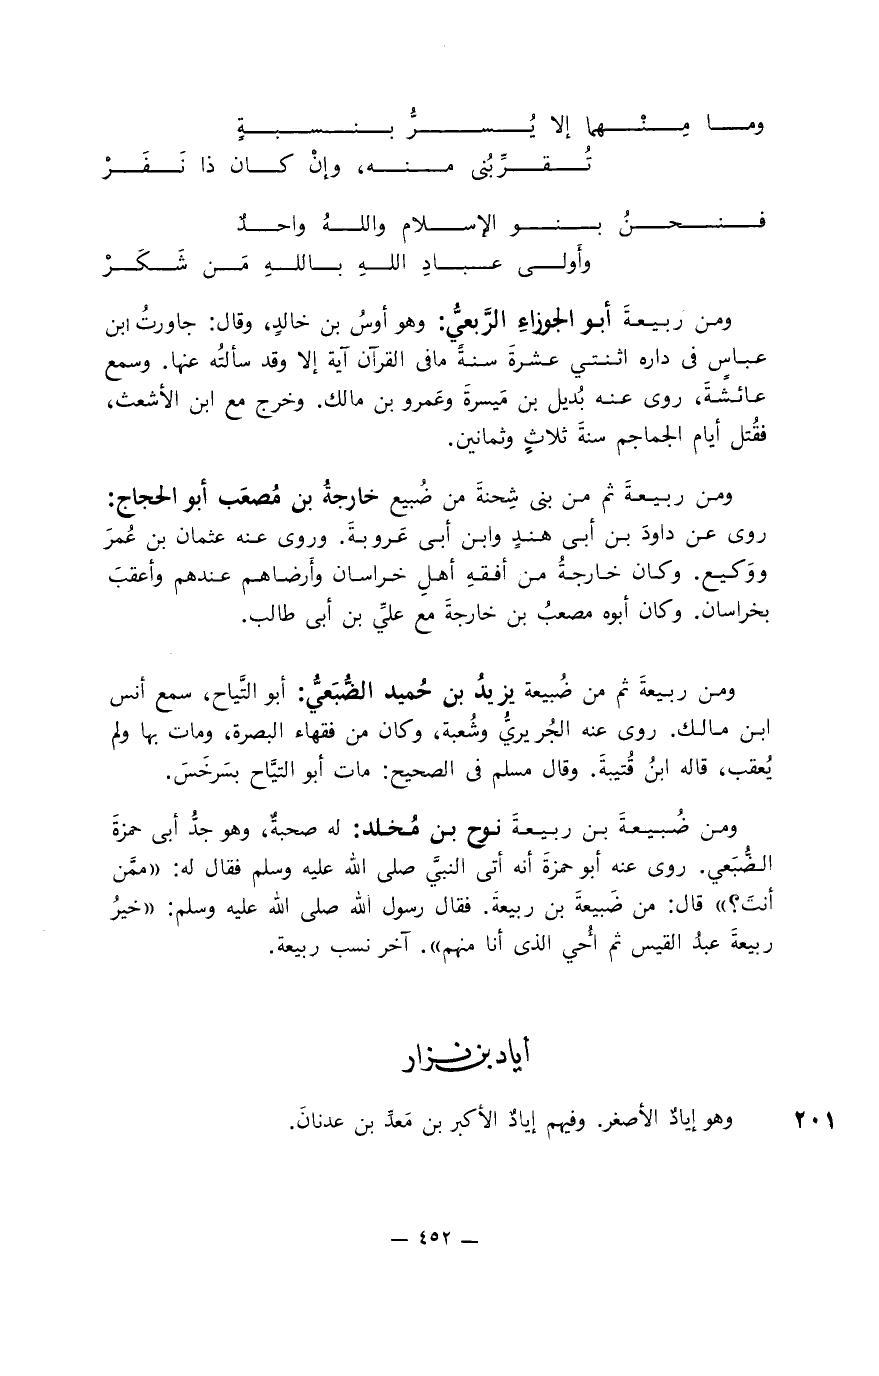 وما مِنْهما إلا يُسَرُّ بنسبةٍ
تُقرِّبُنى منه، وإنْ كان ذا نَفَرْ
فنحنُ بنو الإسلام واللهُ واحدٌ
وأَولى عبادِ اللهِ باللهِ مَن شَكَرْ
ومن ربيعةَ أبو الجوزاءِ الرَّبعيُّ: وهو أوسُ بن خالدٍ، وقال: جاورتُ ابن
عباسٍ فى داره اثنتي عشرةَ سنةً مافى القرآن آية إلا وقد سألتُه عنها. وسمع
عائشةَ، روى عنه بُديل بن مَيسرةَ وعَمرو بن مالك. وخرج مع ابن الأشعث،
فقُتل أيام الجماجم سنةَ ثلاثٍ وثمانين.
ومن ربيعةَ ثم من بنى شِحنةَ من ضُبيع خارجةُ بن مُصعَب أبو الحجاج:
روى عن داودَ بن أبى هندٍ وابن أبى عَروبةَ. وروى عنه عثمان بن عُمرَ
ووَكيع. وكان خارجةُ من أفقهِ أهلِ خراسان وأَرضاهم عندهم وأعقبَ
بخراسان. وكان أبوه مصعبُ بن خارجةَ مع عليِّ بن أبى طالب.
ومن ربيعةَ ثم من ضُبيعة يزيدُ بن حُميد الضُّبَعيُّ: أبو التَّياح، سمع أنس
ابن مالك. روى عنه الجُريريُّ وشُعبة، وكان من فقهاء البصرة، ومات بها ولم
يُعقب، قاله ابنُ قُتيبةَ. وقال مسلم فى الصحيح: مات أبو التيَّاح بسَرخَسَ.
ومن ضُبيعةَ بن ربيعةَ نوح بن مُخلد: له صحبةٌ، وهو جدُّ أبى حمزةَ
الضُّبَعي. روى عنه أبو حمزةَ أنه أتى النبيَّ صلى الله عليه وسلم فقال له: «ممَّن
أنتَ؟» قال: من ضَبيعةَ بن ربيعةَ. فقال رسول الله صلى الله عليه وسلم: «خيرُ
ربيعةَ عبدُ القيس ثم ألحي الذى أنا منهم». آخر نسب ربيعة.
أياد بن نزار
٢٠١ وهو إيادٌ الأصغر. وفيهم إيادٌ الأكبر بن مَعدِّ بن عدنانَ.
— ٤٥٢ —